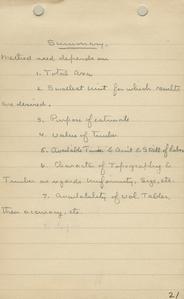 Summary.
Method used depends on
1. Total Area
2. Smallest Unit for which results
are desired.
3. Purpose of estimate
4. Value of timber
5. Available Time & Amt & Skill of labor
6. Character of Topography &
Timber as regards Uniformity, Size, etc.
7. Availability of Vol. Tables,
their accuracy, etc.
21